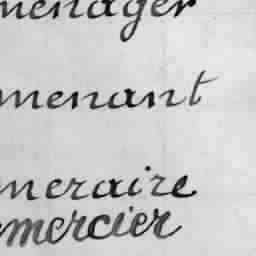 menager
menant
meraire
mercier